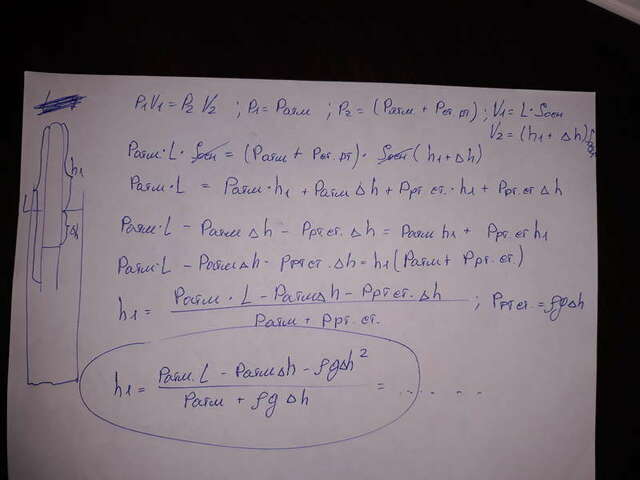 P₁V₁ = P₂ V₂ ; P₁ = Pатм ; P₂ = (Pатм + Pст. рт) ; V₁ = L · Sосн
V₂ = (h₁ + Δh)
Pатм · L · Sосн = (Pатм + Pст. рт) · Sосн (h₁ + Δh)
Pатм · L = Pатм · h₁ + Pатм Δh + Pрт. ст. · h₁ + Pрт. ст Δh
h₁
L
Pатм · L − Pатм Δh − Pрт ст. Δh = Pатм h₁ + Pрт. ст h₁
Pатм · L − Pатм Δh − Pрт ст. Δh = h₁ (Pатм + Pрт. ст.)
h₁ = (Pатм · L − Pатм Δh − Pрт ст. Δh) / (Pатм + Pрт. ст.) ; Pрт ст. = ρgΔh
h₁ = (Pатм. L − Pатм Δh − ρgΔh²) / (Pатм + ρg Δh) = . . . . . .